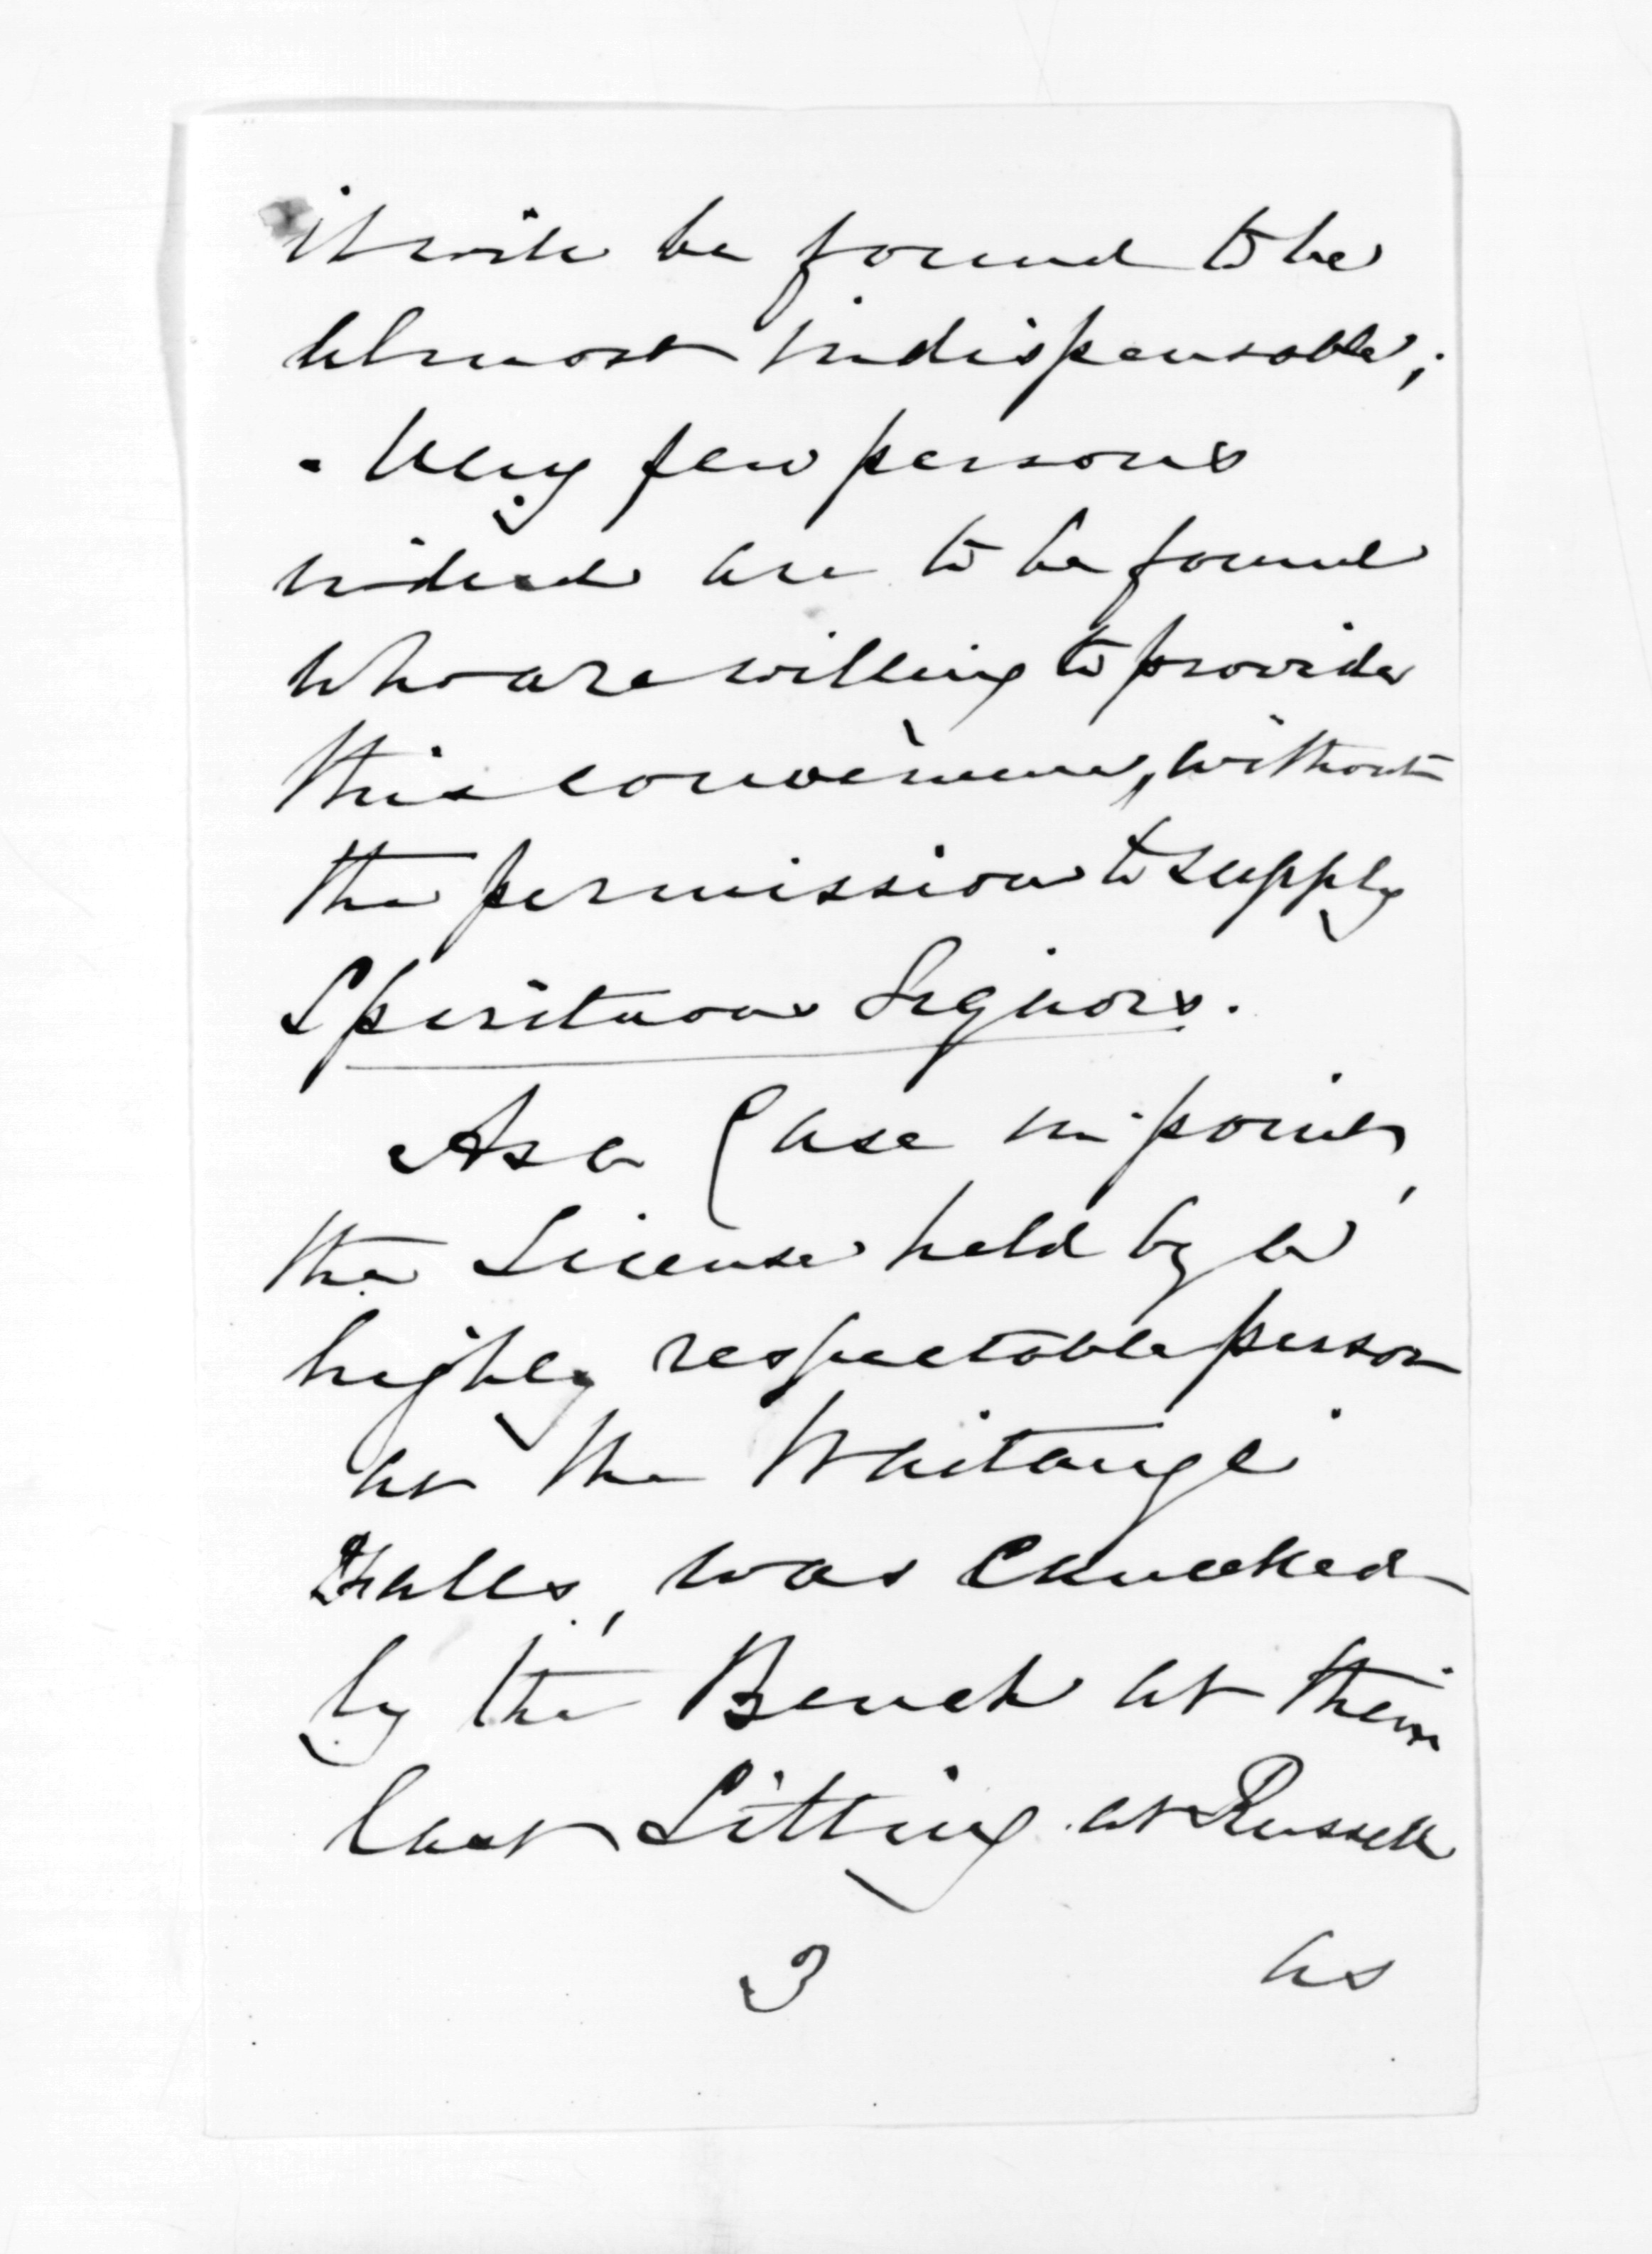 it will be found to be
almost indispensable;
- Very few persons
indeed are to be found
who are willing to provide
this convenience, without
the permission to supply
Spirituous Liquors.
As a Case in point,
the License held by a
highly respectable person
at the Waitangi
Falls, was
by the Bench at their
last Sitting at Russell
3 as